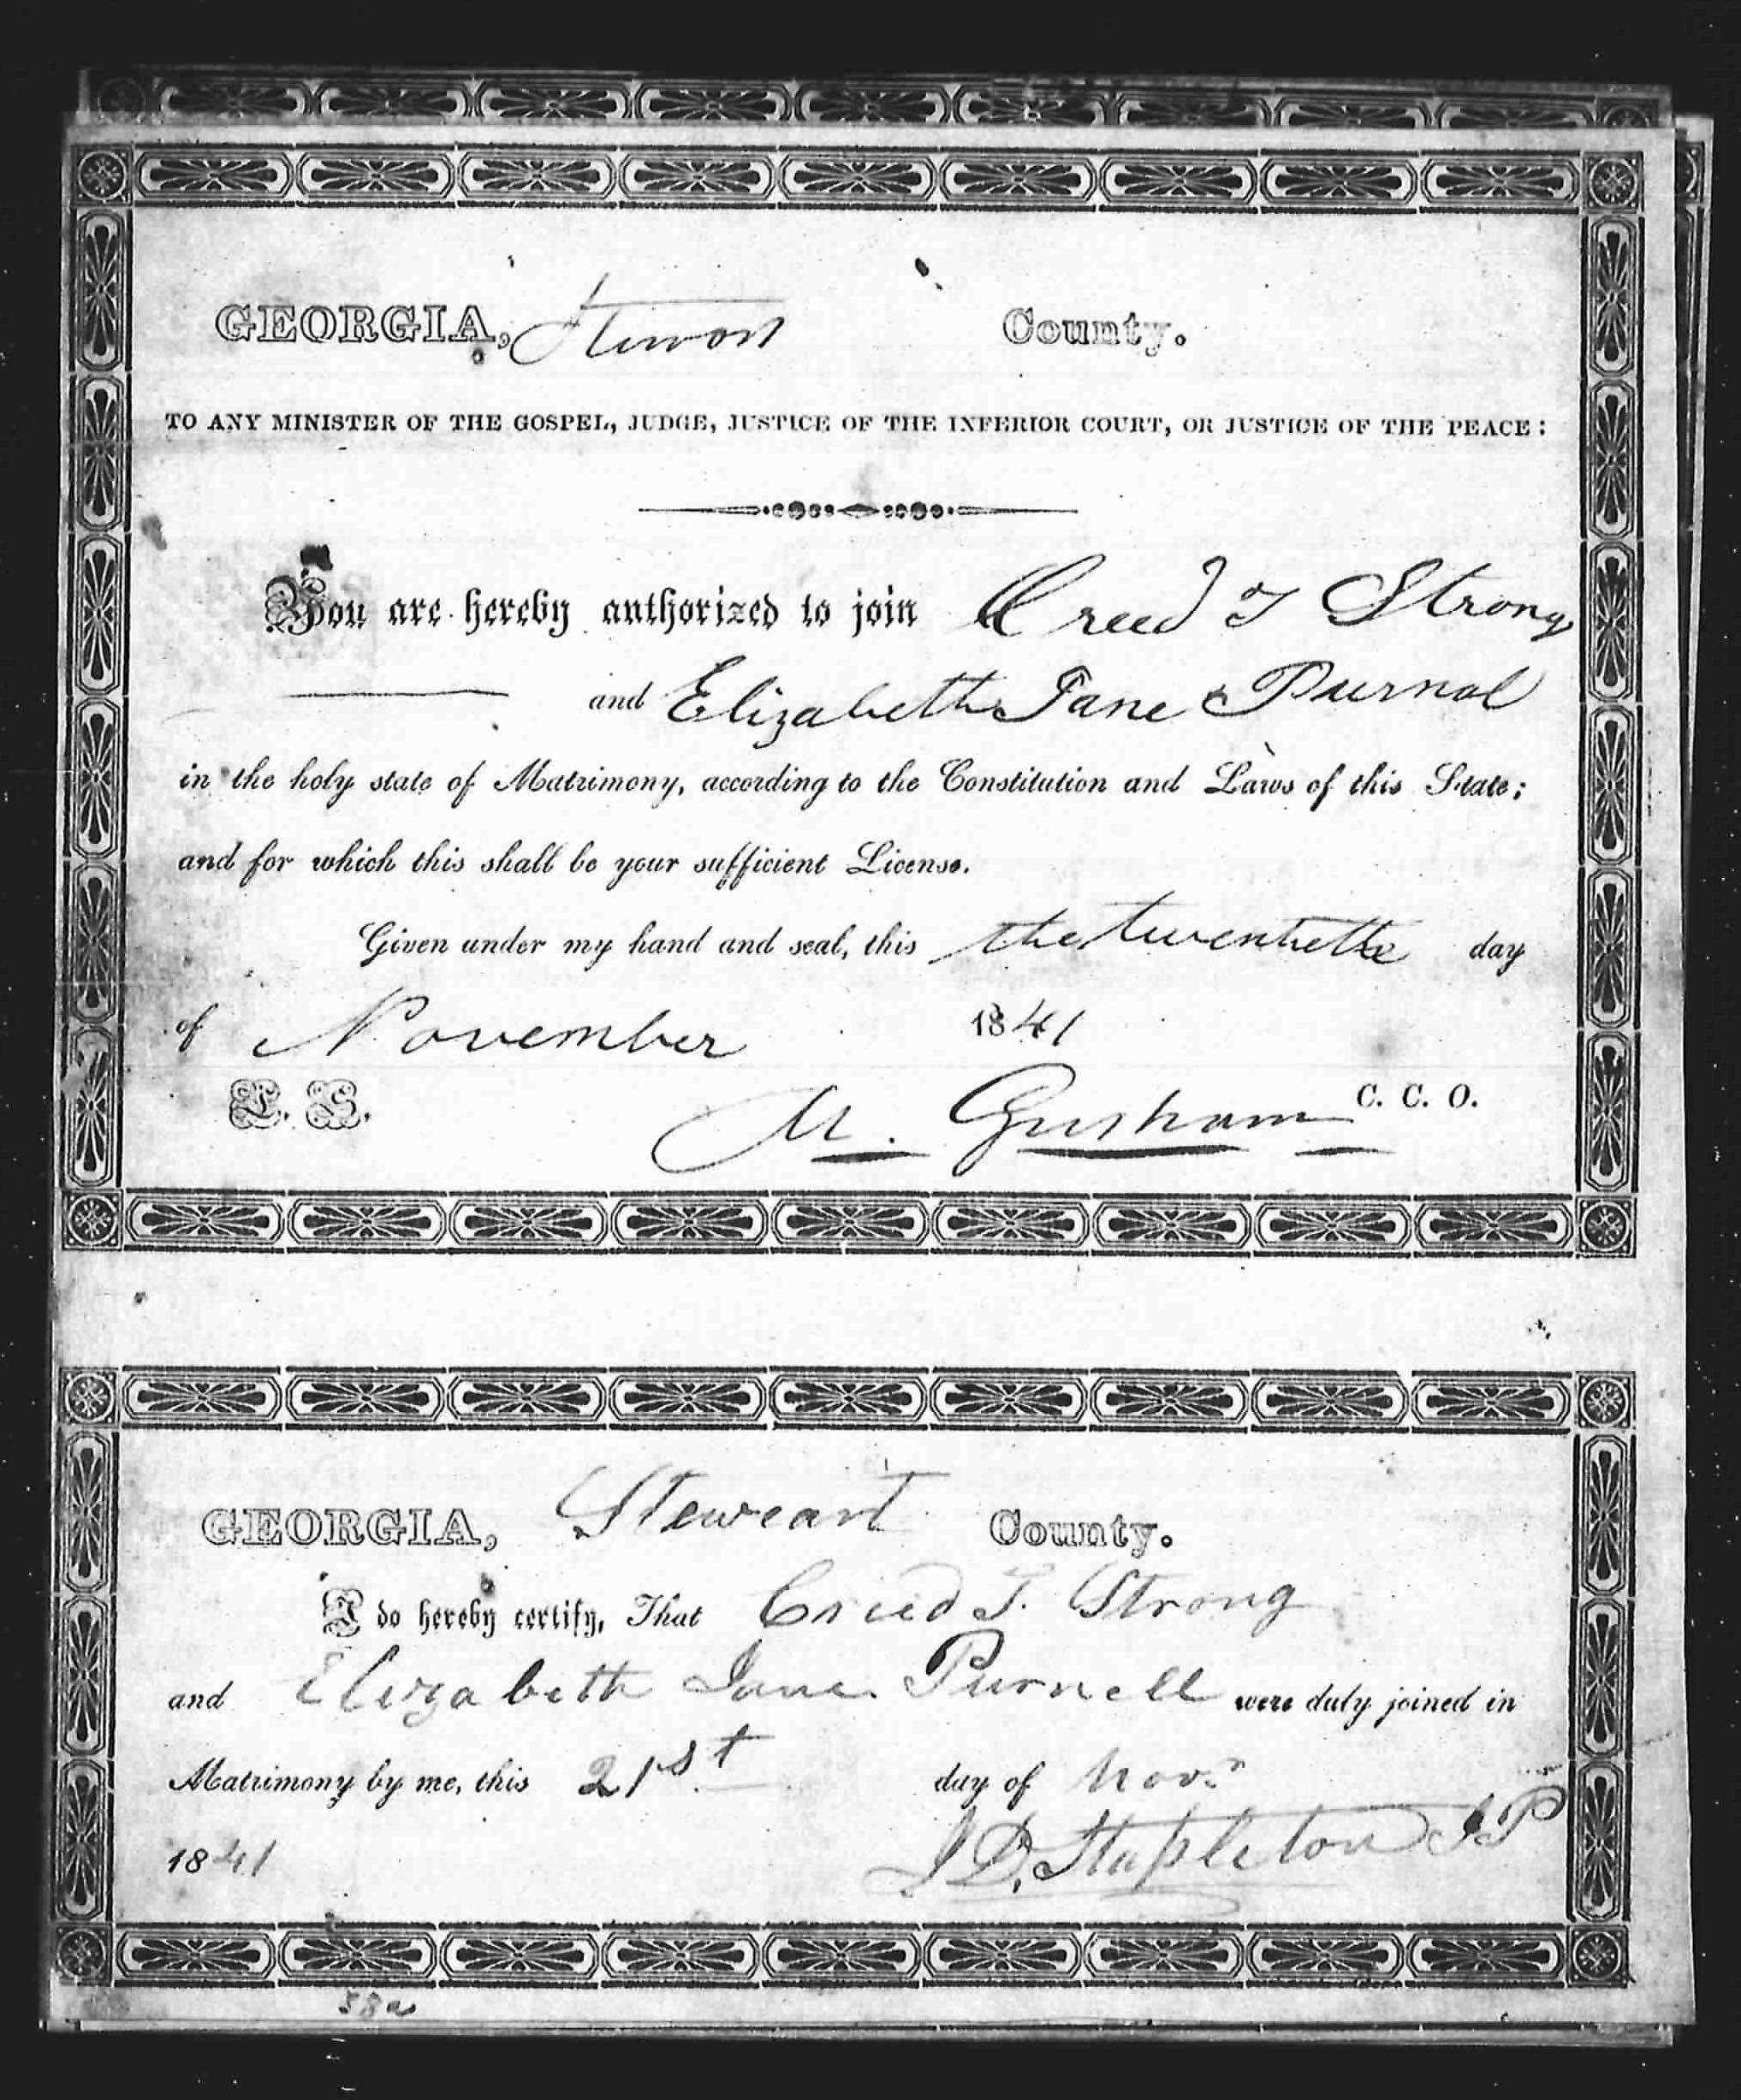 GEORGIA, Stewart County.
TO ANY MINISTER OF THE GOSPEL, JUDGE, JUSTICE OF THE INFERIOR COURT, OR JUSTICE OF THE PEACE:
You are hereby authorized to join Creed T Strong
and Elizabeth Jane Purnal
in the holy state of Matrimony, according to the Constitution and Laws of this State;
and for which this shall be your sufficient License.
Given under my hand and seal, this the twentieth day
of November 1841
L. S. M. Gresham C. C. O.
GEORGIA, Steweart County.
I do hereby certify, That Creed T. Strong
and Elizabeth Jane Purnell were duly joined in
Matrimony by me, this 21st day of Nov.r
1841 J D. Stapleton JP